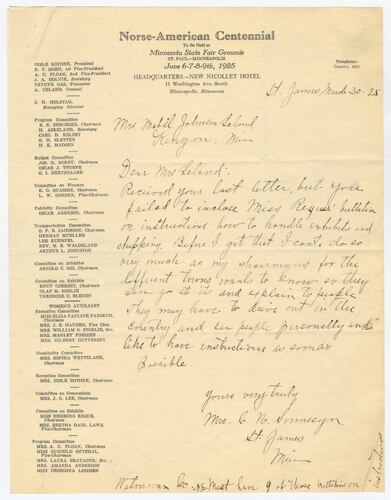 Norse-American Centennial
To Be Held at
Minnesota State Fair Grounds
ST. PAUL—MINNEAPOLIS
June 6-7-8-9th, 1925
HEADQUARTERS—NEW NICOLLET HOTEL
11 Washington Ave. South
Minneapolis, Minnesota
Telephone:
GISLE BOTHNE, President
N. T. MOEN, 1st Vice-President
A. C. FLOAN, 2nd Vice-President
J. A. HOLVIK, Secretary
TRYGVE OAS, Treasurer
A. UELAND, Counsel
S. H. HOLSTAD,
Managing Director
Program Committee
B. E. BERGESEN, Chairman
H. ASKELAND, Secretary
CARL D. KOLSET
O. H. SLETTEN
H. K. MADSEN
Budget Committee
JOS. G. NORBY, Chairman
OSCAR J. THORPE
O. I. HERTSGAARD
Committee on Finance
E. G. QUAMME, Chairman
L. W. Vice-Chairman
Publicity Committee
OSCAR ARNESON, Chairman
Transportation Committee
O. P. B. JACOBSON, Chairman
HERMAN MUELLER
LEE KUEMPEL
REV. M. K. WALDELAND
ARTHUR L. JOHNSTON
Committee on Athletics
ARNOLD C. OSS, Chairman
Committee on Exhibits
KNUT GJERSET, Chairman
OLAF H.
THEODORE C. BLEGEN
WOMEN'S AUXILIARY
Executive Committee
MISS ELISA PAULINE FARSETH,
Chairman
MRS. J. E. HAUGEN, Vice Chm.
MRS. WILLIAM O. STORLIE, Sec.
MRS. MANLEY FOSSEEN
MRS. GILBERT GUTTERSEN
Hospitality Committee
MRS. SOPHIA WETTELAND,
Chairman
Reception Committee
MRS. GISLE BOTHNE, Chairman
Committee on Concessions
MRS. J. O. LEE, Chairman
Committee on Exhibits
MISS HERBORG REQUE, Chairman
MRS. BERTHA DAHL LAWS,
Vice-Chairman
Program Committee
MRS. A. C. FLOAN, Chairman
MISS GUNHILD OFTEDAL,
Vice-Chairman
MRS. LAURA BRATAGER, Sec.
MRS. AMANDA ANDERSON
MISS GEORGINA LOMMEN
St. James March 30-25
Mrs Mabil Johnson Leland
Kenyon Min
Dear Mrs Leland:
Received your last letter, but you
failed to inclose Miss Reques' bulletin
on instructions how to handle exhibits and
shipping. Before I get that I cant do so
very much as my chairmans for the
different towns wants to know so they
can go at it and explain to people
They may have to drive out in the
country and see people personally and
like to have instructions as soon as
Possible
Yours very truly
Mrs. C. N. Sonnesyn
St James
Min
Watonwan Co. Must have 9 of those bulletins on